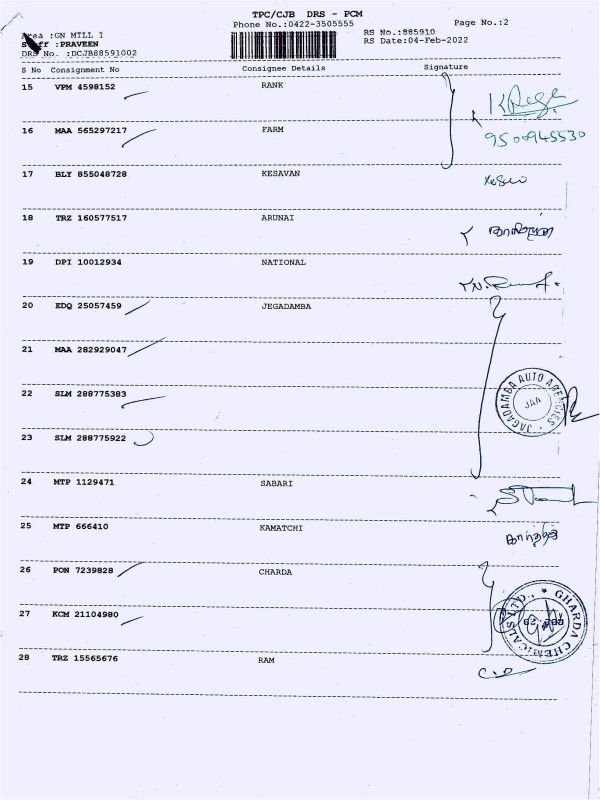 TPC/CJB DRS - PCM
Phone No.:0422-3505555
Page No.:2
Area :GN MILL 1
RS No.:885910
Staff :PRAVEEN
RS Date:04-Feb-2022
DRS No. :DCJB88591002
S No Consignment No Consignee Details Signature
15 VPM 4598152 RANK
16 MAA 565297217 FARM
17 BLY 855048728 KESAVAN
18 TRZ 160577517 ARUNAI
19 DPI 10012934 NATIONAL
20 EDQ 25057459 JEGADAMBA
21 MAA 282929047
22 SLM 288775383
JAGADAMBA AUTO AGENCIES
23 SLM 288775922
24 MTP 1129471 SABARI
25 MTP 666410 KAMATCHI
26 PON 7239828 CHARDA
27 KCM 21104980
GHARDA CHEMICALS LTD.,
28 TRZ 15565676 RAM